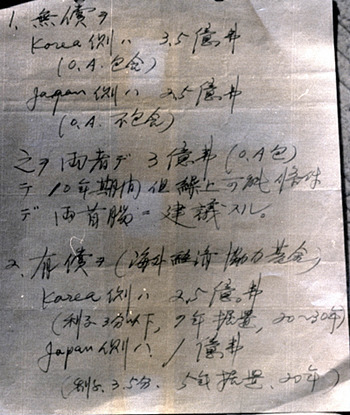 1. 無償ヲ
Korea側ハ 3.5億弗
(O.A.包含)
Japan側ハ 2.5億弗
(O.A.不包含)
之ヲ両者デ 3億弗(O.A包)
デ 10年期間但繰上可能條件
デ両首脳ニ建議スル。
2. 有償ヲ(海外経済協力基金)
Korea側ハ 2.5億弗
(利子3分以下, 7年据置, 20〜30年)
Japan側ハ 1億弗
(利子3.5分, 5年据置, 20年)